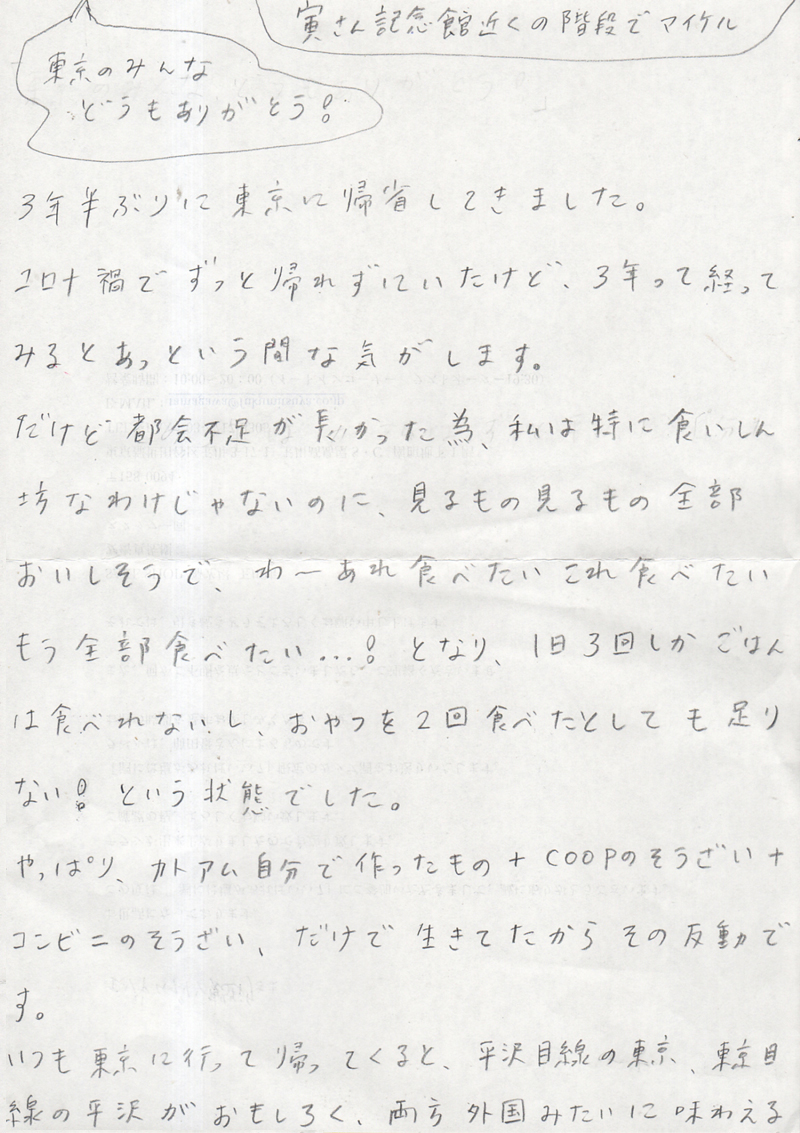 寅さん記念館近くの階段でマイケル
東京のみんな
どうもありがとう!
3年半ぶりに東京に帰省してきました。
コロナ禍でずっと帰れずにいたけど、3年って経って
みるとあっという間な気がします。
だけど都会不足が長かった為、私は特に食いしん
坊なわけじゃないのに、見るもの見るもの全部
おいしそうで、わ〜あれ食べたいこれ食べたい
もう全部食べたい...!となり、1日3回しかごはん
は食べれないし、おやつを2回食べたとしても足り
ない!という状態でした。
やっぱり、カトアム自分で作ったもの+COOPのそうざい+
コンビニのそうざい、だけで生きてたからその反動で
す。
いつも東京に行って帰ってくると、平沢目線の東京、東京目
線の平沢がおもしろく、両方外国みたいに味わえる